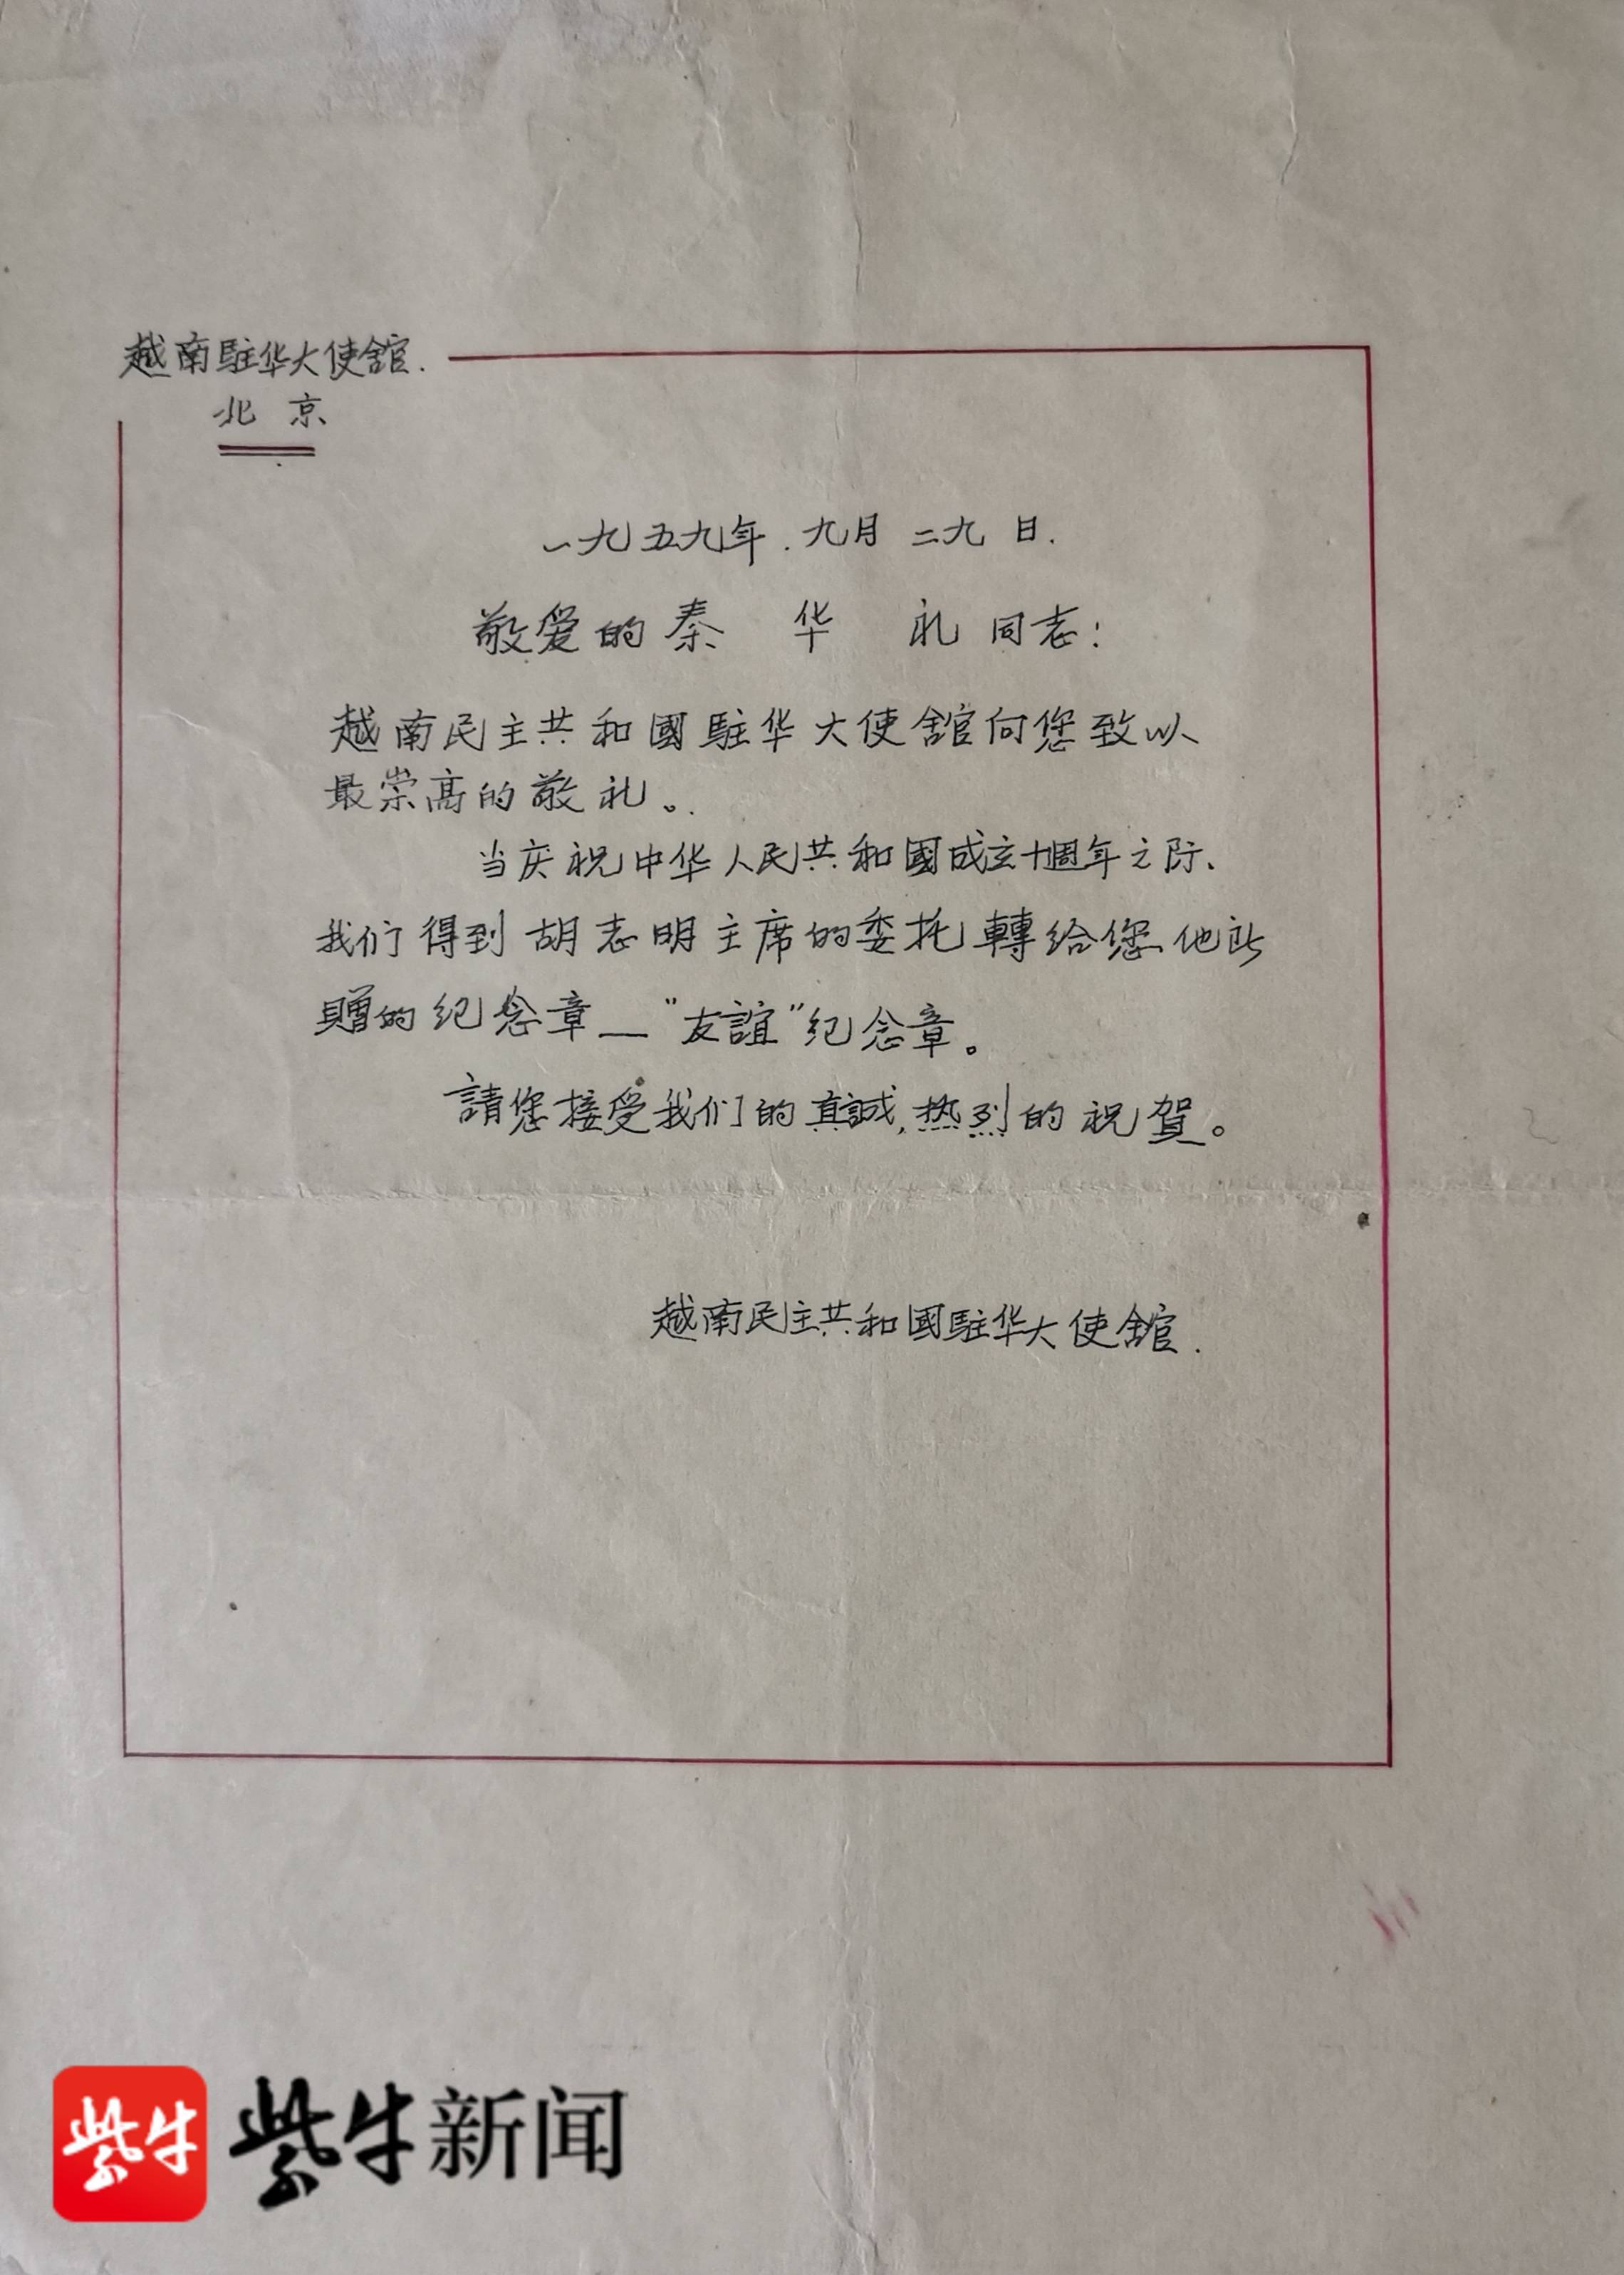 越南駐华大使舘.
北 京
一九五九年.九月 二九 日.
敬爱的秦 华 礼 同志：
越南民主共和國駐华大使舘向您致以
最崇高的敬礼。
当庆祝中华人民共和國成立十週年之际、
我们得到胡志明主席的委托轉给您他所
贈的纪念章—“友誼”纪念章。
請您接受我们的真誠,热烈的祝賀。
越南民主共和國駐华大使舘.
紫牛 紫牛新闻